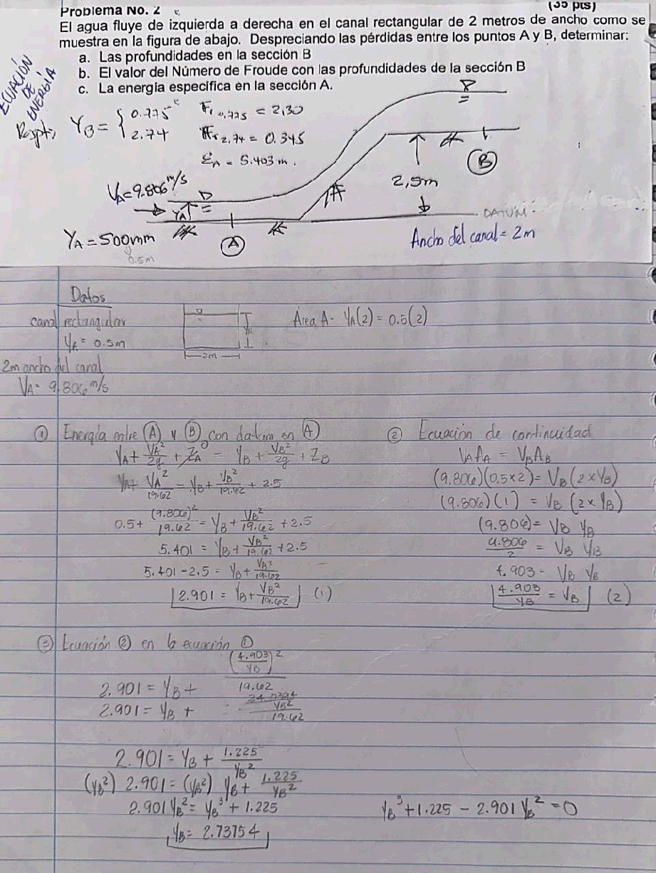 Problema No. 2
(35 pts)
El agua fluye de izquierda a derecha en el canal rectangular de 2 metros de ancho como se
muestra en la figura de abajo. Despreciando las pérdidas entre los puntos A y B, determinar:
a. Las profundidades en la sección B
b. El valor del Número de Froude con las profundidades de la sección B
c. La energía específica en la sección A.
ECUACIÓN
DE
ENERGÍA
Rspt, YB = { 0.775 2.74
Fr 0.775 = 2.30
Fr 2.74 = 0.345
EA = 5.403 m.
VA = 9.806 m/s
YA
YA = 500mm
0.5m
A
B
2,5m
DATUM
Ancho del canal = 2m
Datos
canal rectangular
YA = 0.5m
2m ancho del canal
VA = 9.806 m/s
2m
Área A = YA(2) = 0.5(2)
① Energía entre Ⓐ y Ⓑ con datum en Ⓐ
YA + VA²/2g + ZA⁰ = YB + VB²/2g + ZB
YA + VA²/19.62 = YB + VB²/19.62 + 2.5
0.5 + (9.806)²/19.62 = YB + VB²/19.62 + 2.5
5.401 = YB + VB²/19.62 + 2.5
5.401 - 2.5 = YB + VB²/19.62
2.901 = YB + VB²/19.62 (1)
② Ecuación de continuidad
VAAA = VBAB
(9.806)(0.5×2) = VB(2×YB)
(9.806)(1) = VB (2×YB)
(9.806) = VB YB
9.806/2 = VB YB
4.903 = VB YB
4.903/YB = VB (2)
③ Ecuación ② en la ecuación ①
2.901 = YB + (4.903/YB)²/19.62
2.901 = YB + 24.0394/YB²/19.62
2.901 = YB + 1.225/YB²
(YB²) 2.901 = (YB²) YB + 1.225/YB² YB²
2.901 YB² = YB³ + 1.225
YB³ + 1.225 - 2.901 YB² = 0
YB = 2.73754